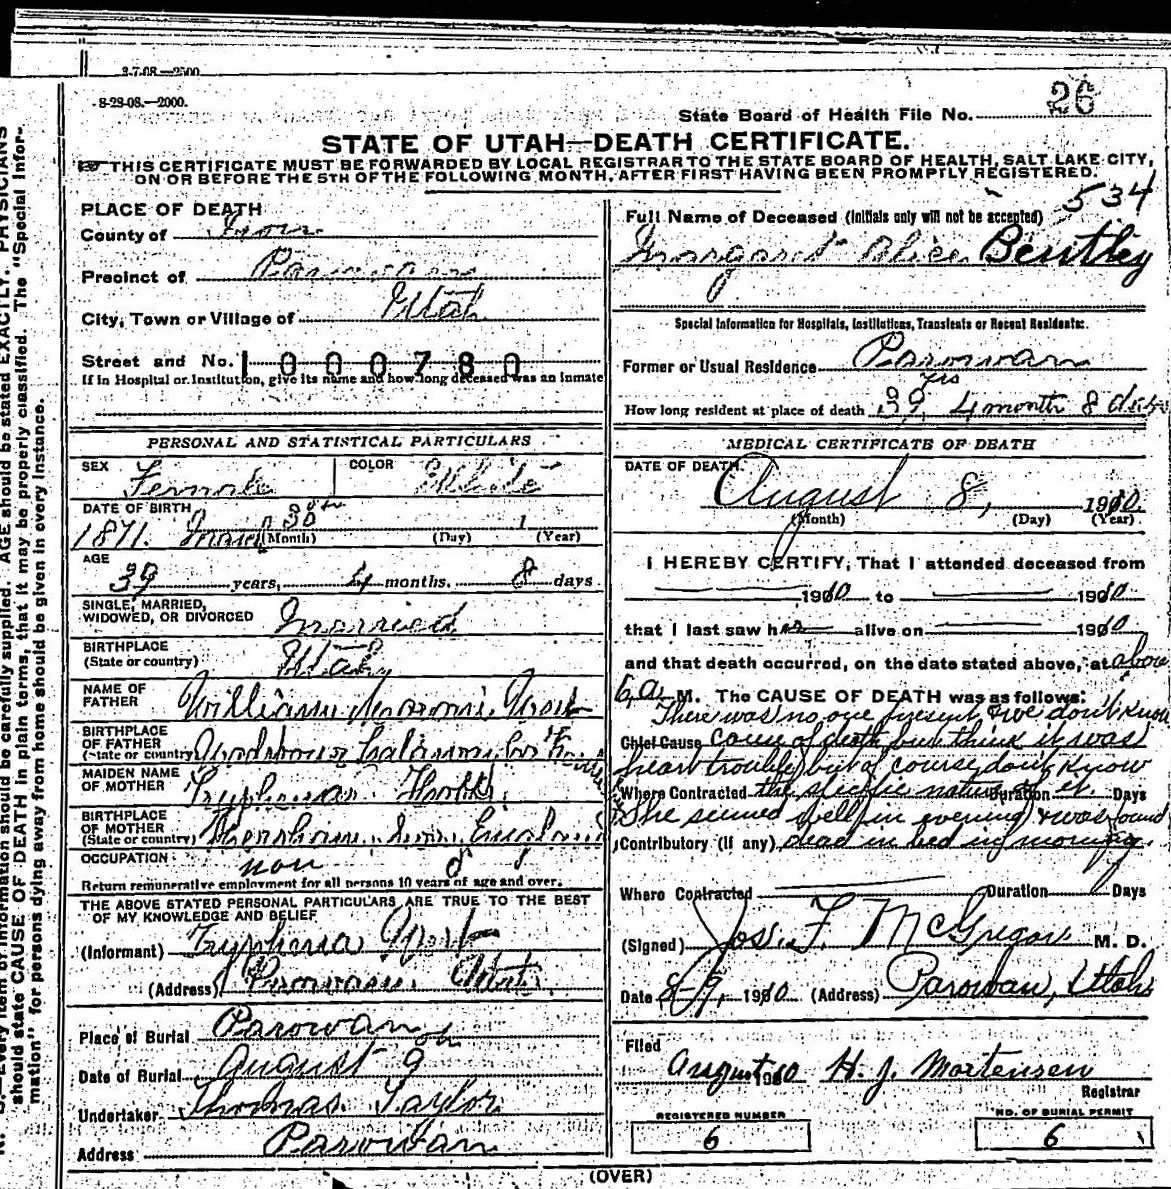 3-7-08.—2500.
8-28-08.—2000.
State Board of Health File No. 26
STATE OF UTAH—DEATH CERTIFICATE.
THIS CERTIFICATE MUST BE FORWARDED BY LOCAL REGISTRAR TO THE STATE BOARD OF HEALTH, SALT LAKE CITY,
ON OR BEFORE THE 5TH OF THE FOLLOWING MONTH, AFTER FIRST HAVING BEEN PROMPTLY REGISTERED.
534
PLACE OF DEATH
County of Iron
Precinct of Parowan
City, Town or Village of Utah
Street and No. 1000780
If in Hospital or Institution, give its name and how long deceased was an inmate
Full Name of Deceased (Initials only will not be accepted)
Margaret Alice Bentley
Special Information for Hospitals, Institutions, Transients or Recent Residents:
Former or Usual Residence Parowan
How long resident at place of death 39 yrs 4 month 8 days
PERSONAL AND STATISTICAL PARTICULARS
SEX Female COLOR White
DATE OF BIRTH
1871. 30
(Month) (Day) (Year)
AGE
39 years, 4 months, 8 days
SINGLE, MARRIED,
WIDOWED, OR DIVORCED Married
BIRTHPLACE
(State or country) Utah
NAME OF
FATHER William
BIRTHPLACE
OF FATHER
(State or country)
MAIDEN NAME
OF MOTHER
BIRTHPLACE
OF MOTHER
(State or country) England
OCCUPATION non
Return remunerative employment for all persons 10 years of age and over.
THE ABOVE STATED PERSONAL PARTICULARS ARE TRUE TO THE BEST
OF MY KNOWLEDGE AND BELIEF
(Informant)
(Address) Parowan Utah
Place of Burial Parowan
Date of Burial August 9
Undertaker Thomas Taylor
Address Parowan
MEDICAL CERTIFICATE OF DEATH
DATE OF DEATH
August 8, 1910.
(Month) (Day) (Year)
I HEREBY CERTIFY, That I attended deceased from
1910 to 1910
that I last saw her alive on 1910
and that death occurred, on the date stated above, at about
6 a. M. The CAUSE OF DEATH was as follows:
There was no one present & we don't know
Chief Cause cause of death but think it was
heart trouble but of course don't know
Where Contracted the specific nature of it Duration Days
She seemed well in evening & was found
Contributory (if any) dead in bed in morning.
Where Contracted Duration Days
(Signed) Jos. F. McGregor M. D.
Date 8-9, 1910 (Address) Parowan, Utah
Filed
August 1910 H. J. Mortensen
Registrar
REGISTERED NUMBER
6
NO. OF BURIAL PERMIT
6
(OVER)
Every item of information should be carefully supplied. AGE should be stated EXACTLY. PHYSICIANS
should state CAUSE OF DEATH in plain terms, that it may be properly classified. The "Special Infor-
mation" for persons dying away from home should be given in every instance.